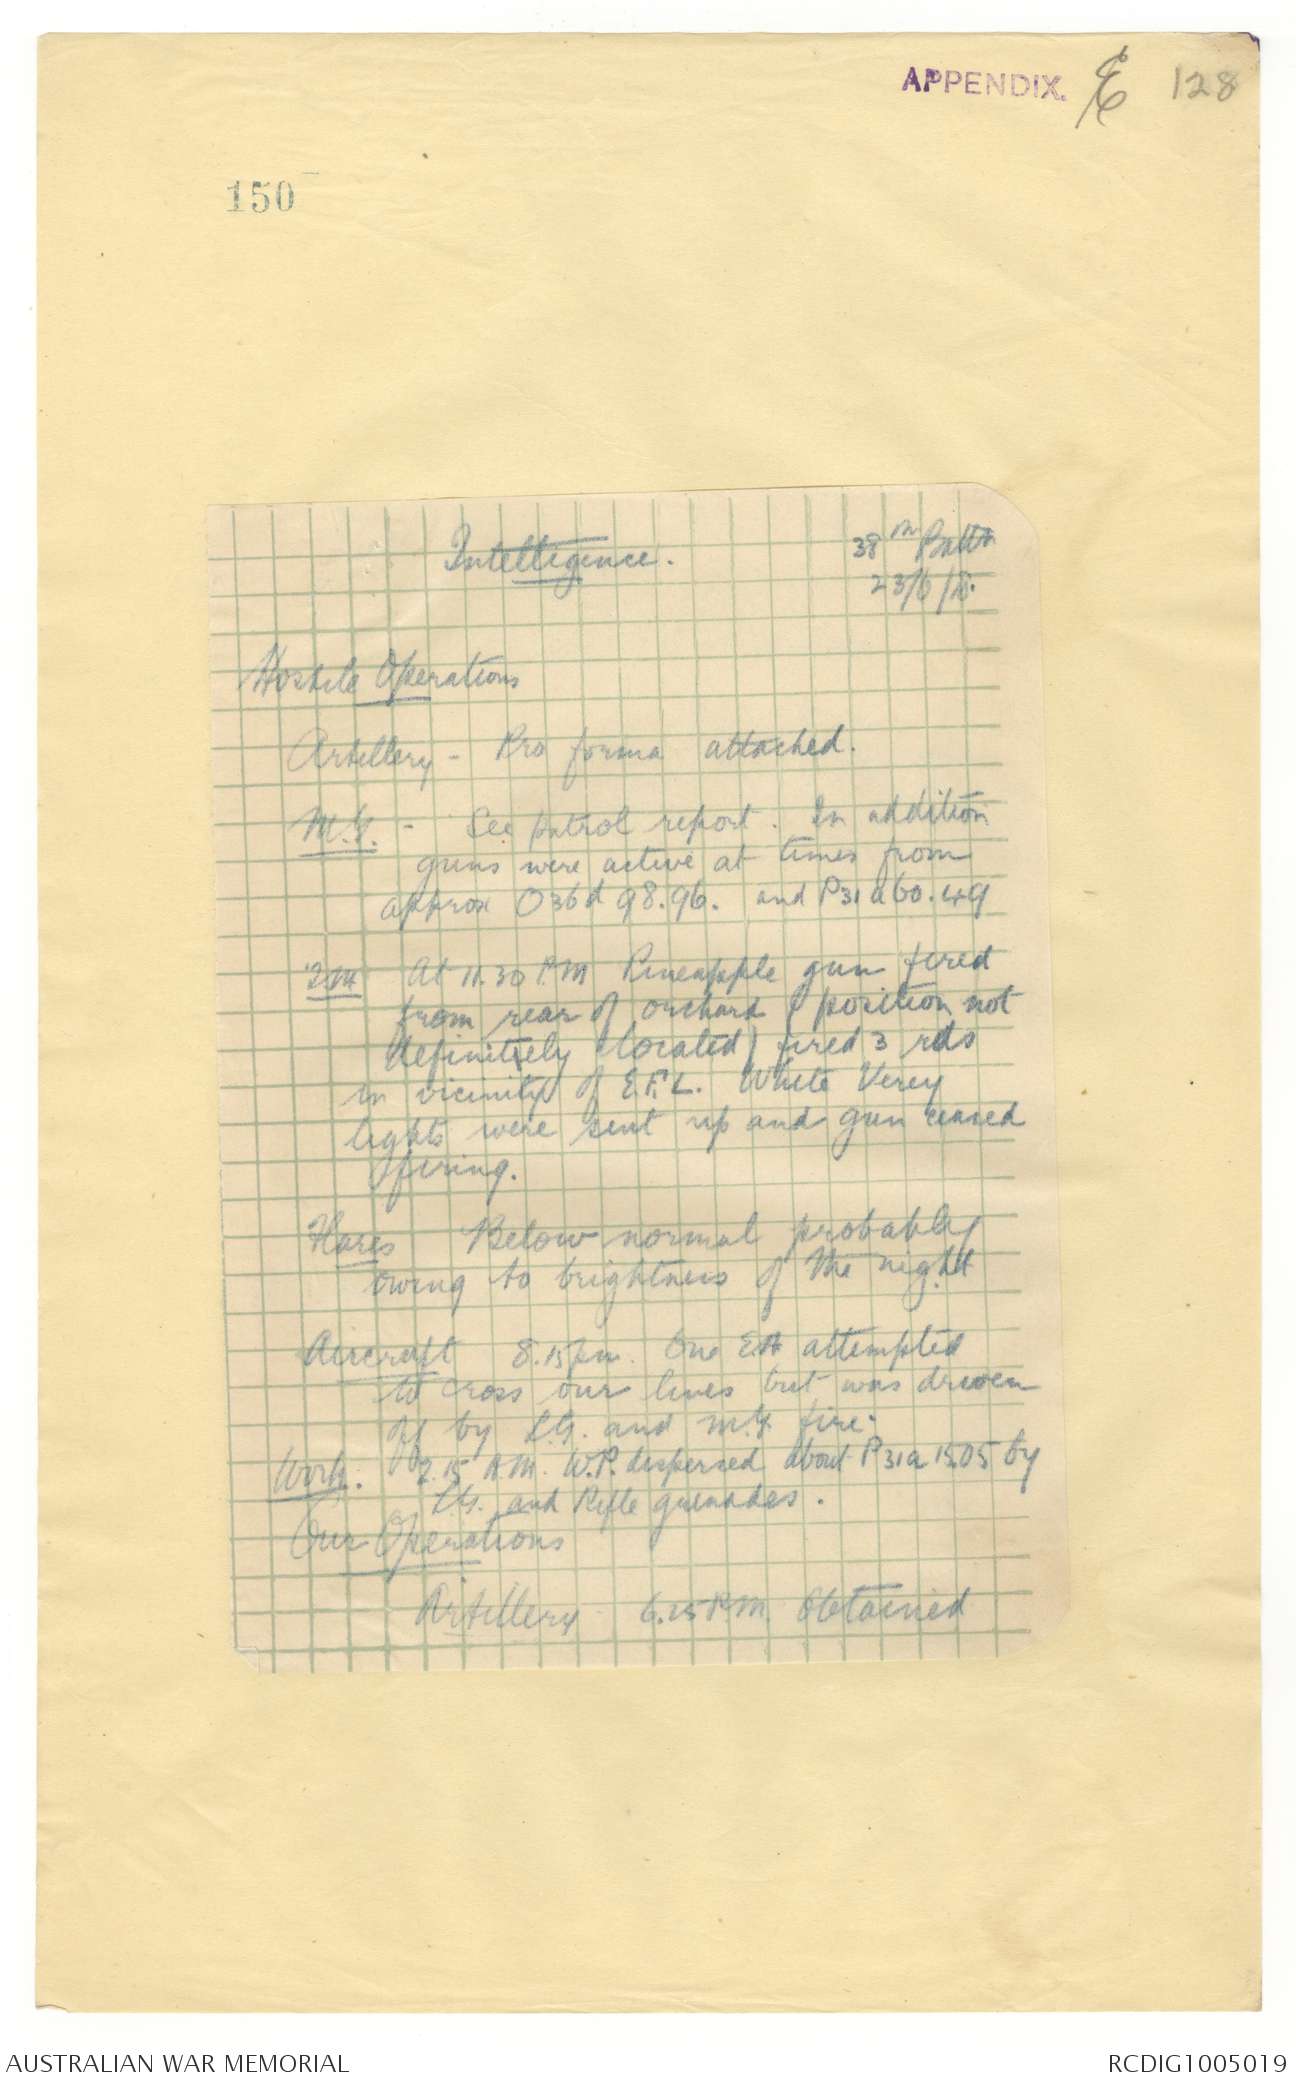 APPENDIX. E 128
150
Intelligence. 38th Battn
23/6/18.
Hostile Operations
Artillery - Pro forma attached.
M.G. - See patrol report. In addition
guns were active at times from
approx O36d 98.96. and P31a60.49
T.M At 11.30 P.M Pineapple gun fired
from rear of orchard (position not
definitely located) fired 3 rds
in vicinity of E.F.L. White Verey
lights were sent up and gun ceased
firing.
Flares Below normal probably
owing to brightness of the night
Aircraft 8.15pm. One E.A attempted
to cross our lines but was driven
off by L.G. and M.G. fire.
Work. 2.15 A.M. W.P. dispersed about P31a 15.05 by
L.G. and Rifle grenades.
Our Operations
Artillery 6.25 P.M. Obtained
AUSTRALIAN WAR MEMORIAL RCDIG1005019